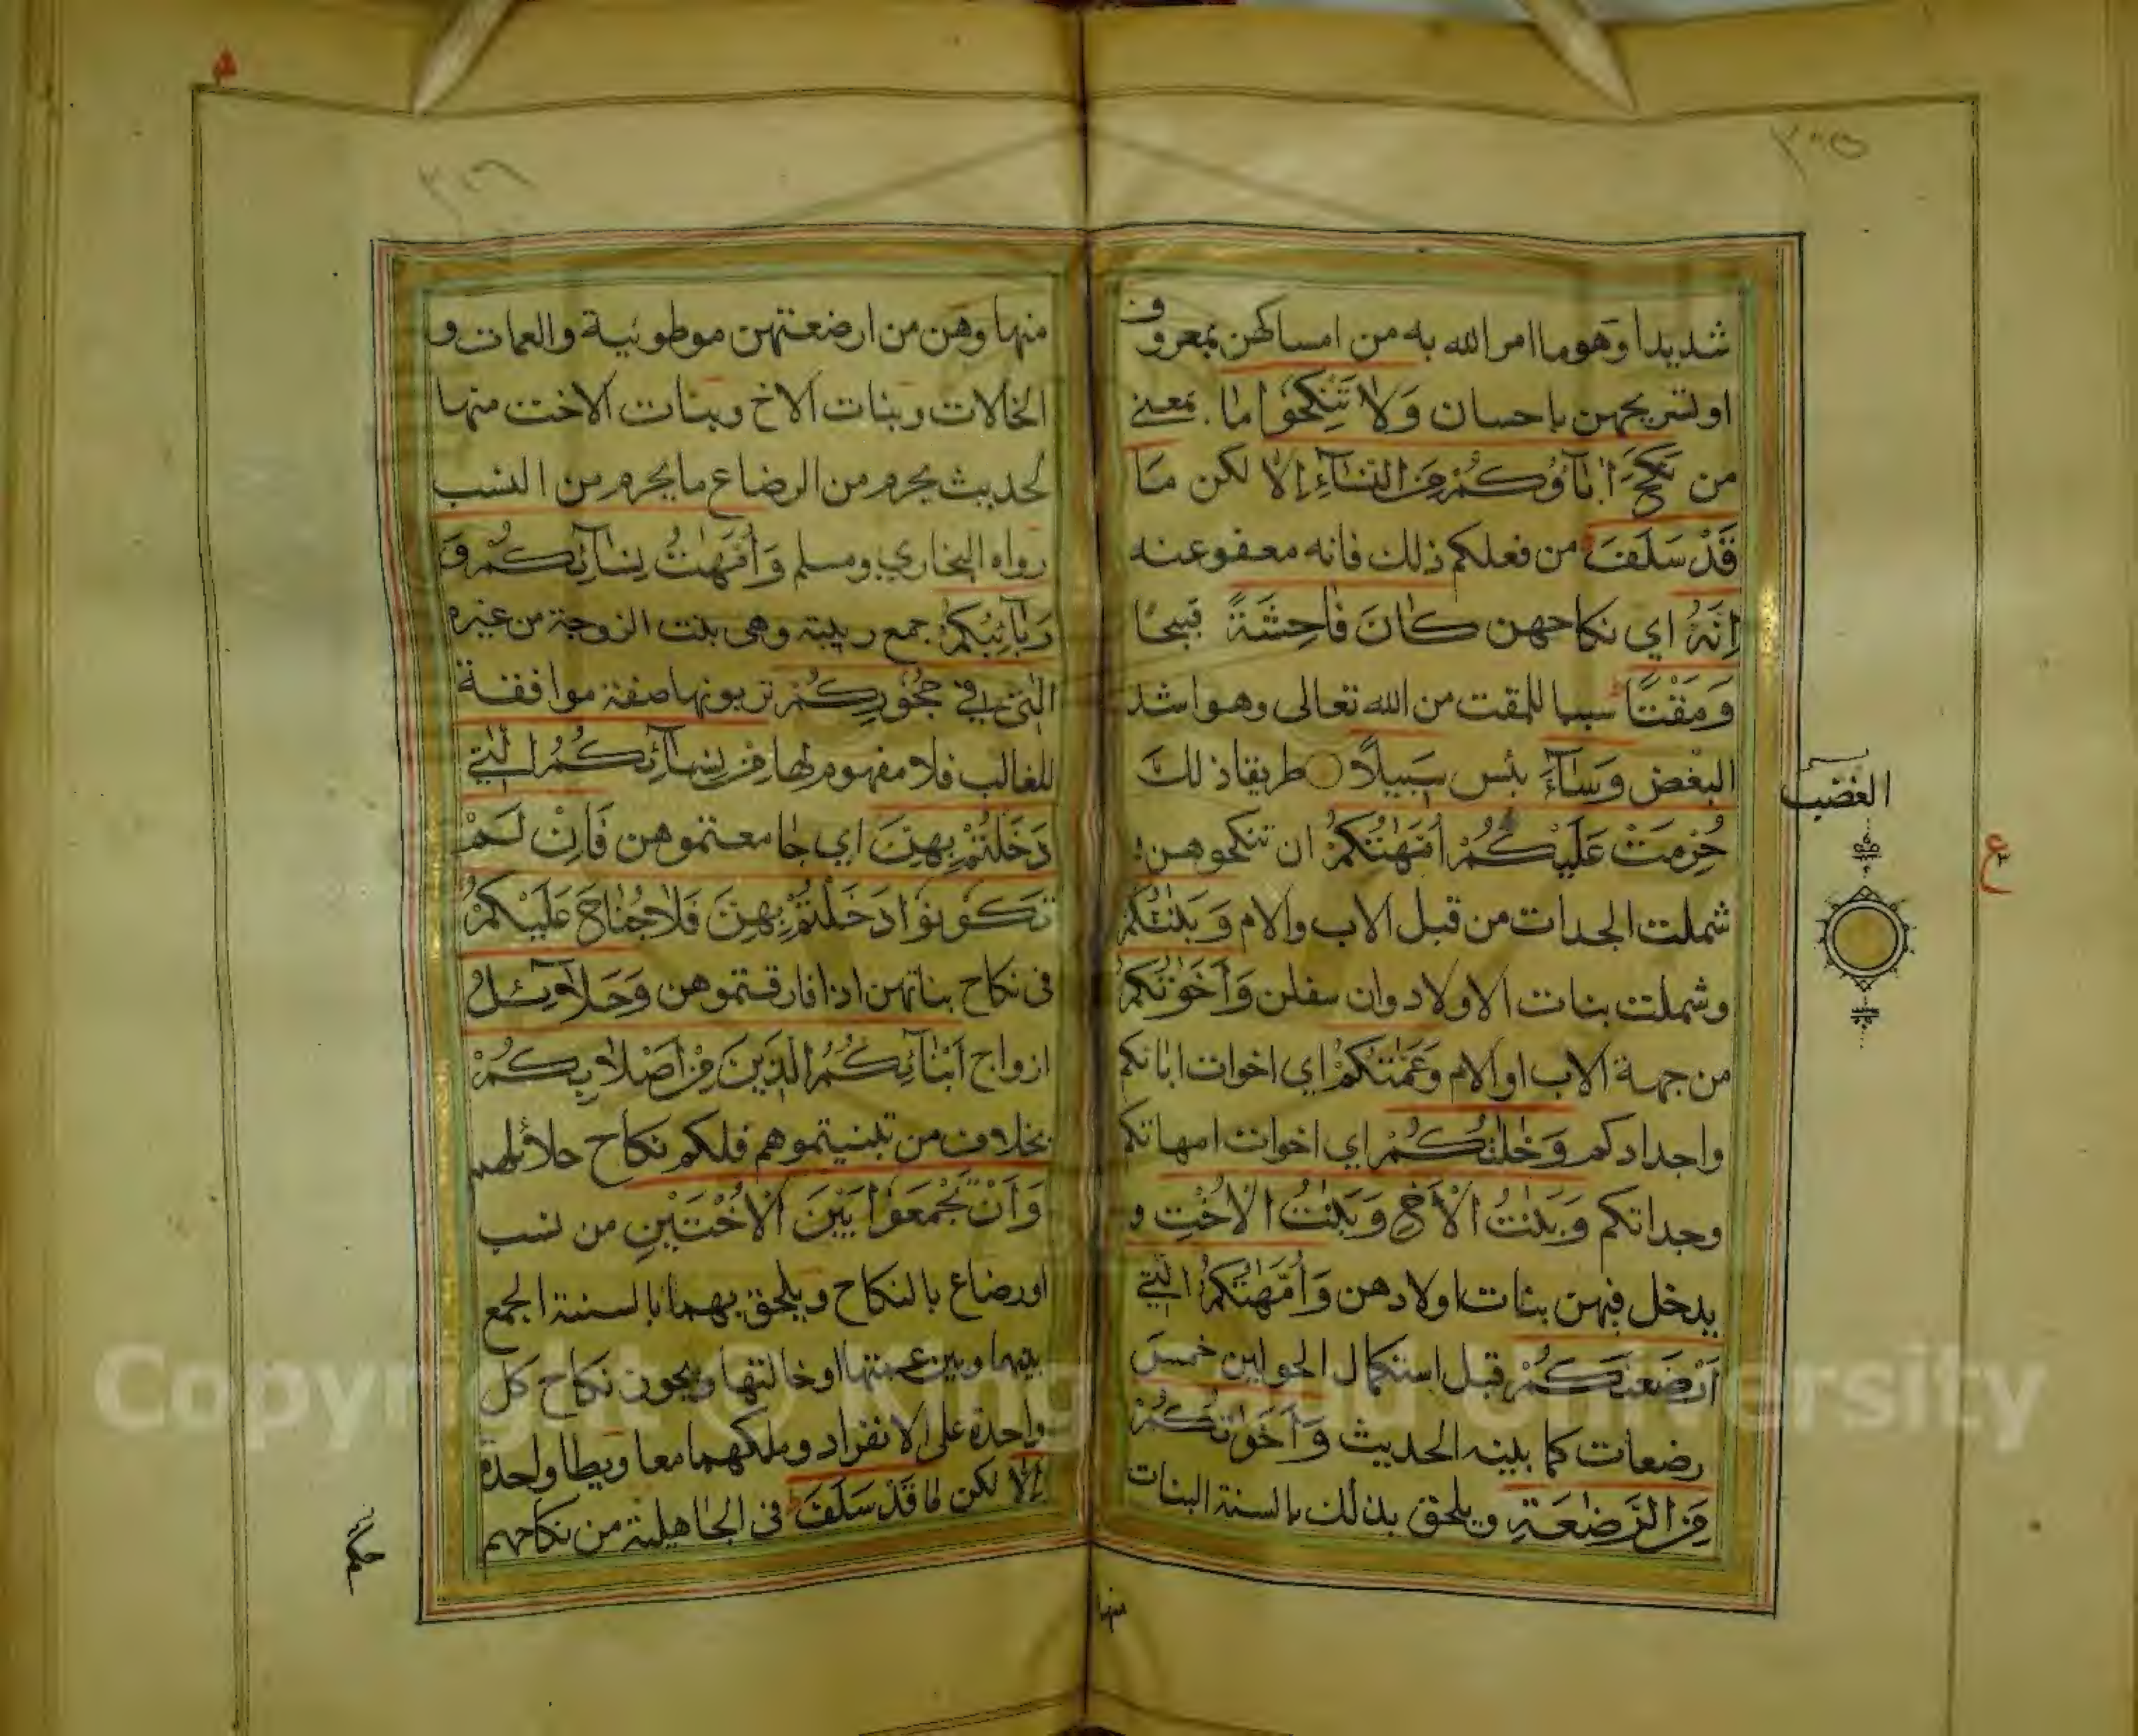 ٣٠٥
شديدا وهو ما امر الله به من امساكهن بمعروف
او لتسريحهن باحسان وَلَا تَنْكِحُوا مَا بمعنى
من نَكَحَ اٰبَآؤُكُمْ مِنَ النِّسَآءِ اِلَّا لكن مَا
قَدْ سَلَفَ من فعلكم ذلك فانه معفو عنه
اِنَّهُ اي نكاحهن كَانَ فَاحِشَةً قبيحا
وَمَقْتًا سببا للمقت من الله تعالى وهو اشد
البغض وَسَآءَ بئس سَبِيلًا طريقا ذلك
حُرِّمَتْ عَلَيْكُمْ اُمَّهٰتُكُمْ ان تنكحوهن و
شملت الجدات من قبل الاب والام وَبَنٰتُكُمْ
وشملت بنات الاولاد وان سفلن وَاَخَوٰتُكُمْ
من جهة الاب او الام وَعَمّٰتُكُمْ اي اخوات ابائكم
واجدادكم وَخٰلٰتُكُمْ اي اخوات امهاتكم
وجداتكم وَبَنٰتُ الْاَخِ وَبَنٰتُ الْاُخْتِ و
يدخل فيهن بنات اولادهن وَاُمَّهٰتُكُمُ الّٰتِي
اَرْضَعْنَكُمْ قبل استكمال الحولين خمس
رضعات كما بينه الحديث وَاَخَوٰتُكُمْ
مِنَ الرَّضٰعَةِ ويلحق بذلك بالسنة البنات
منها
الغضب
ع
٣٠٦
منها وهن من ارضعتهن موطوئية والعمات و
الخالات وبنات الاخ وبنات الاخت منها
لحديث يحرم من الرضاع ما يحرم من النسب
رواه البخاري ومسلم وَاُمَّهٰتُ نِسَآئِكُمْ وَ
رَبَآئِبُكُمُ جمع ربيبة وهي بنت الزوجة من غيره
الّٰتِي فِي حُجُورِكُمْ تربونها صفة موافقة
للغالب فلا مفهوم لها مِنْ نِسَآئِكُمُ الّٰتِي
دَخَلْتُمْ بِهِنَّ اي جامعتموهن فَاِنْ لَمْ
تَكُونُوا دَخَلْتُمْ بِهِنَّ فَلَا جُنَاحَ عَلَيْكُمْ
في نكاح بناتهن اذا فارقتموهن وَحَلَآئِلُ
ازواج اَبْنَآئِكُمُ الَّذِينَ مِنْ اَصْلَابِكُمْ
بخلاف من تبنيتموهم فلكم نكاح حلائلهم
وَاَنْ تَجْمَعُوا بَيْنَ الْاُخْتَيْنِ من نسب
او رضاع بالنكاح ويلحق بهما بالسنة الجمع
بينها وبين عمتها او خالتها ويجوز نكاح كل
واحدة على الانفراد وملكهما معا ويطا واحدة
اِلَّا لكن مَا قَدْ سَلَفَ في الجاهلية من نكاحهم
Copyright © King Saud University